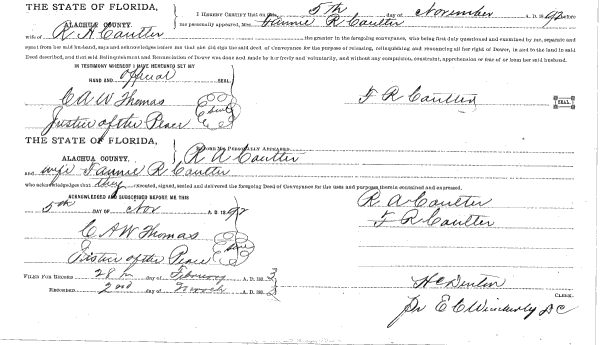 THE STATE OF FLORIDA,
ALACHUA COUNTY.
I HEREBY CERTIFY that on this 5th day of November A. D. 1892 before
me personally appeared, Mrs. Fannie R Coulter
wife of R. A Coulter the grantor in the foregoing conveyance, who being first duly questioned and examined by me, separate and
apart from her said husband, says and acknowledges before me that she did sign the said deed of Conveyance for the purpose of releasing, relinquishing and renouncing all her right of Dower, in and to the land in said
Deed described, and that said Relinquishment and Renunciation of Dower was done and made by her freely and voluntarily, and without any compulsion, constraint, apprehension or fear of or from her said husband.
IN TESTIMONY WHEREOF I HAVE HEREUNTO SET MY
HAND AND official SEAL.
C A W Thomas
Seal
F R Coulter
SEAL.
Justice of the Peace
THE STATE OF FLORIDA,
ALACHUA COUNTY.
BEFORE ME PERSONALLY APPEARED
R A Coulter
and wife Fannie R Coulter
who acknowledges that they executed, signed, sealed and delivered the foregoing Deed of Conveyance for the uses and purposes therein contained and expressed.
ACKNOWLEDGED AND SUBSCRIBED BEFORE ME THIS
5th DAY OF Nov A. D. 1892
R. A Coulter
F R Coulter
C A W Thomas
Seal
Justice of the Peace
FILED FOR RECORD 28th day of February A. D. 1893
RECORDED 2nd day of March A. D. 1893
H C Denton
CLERK.
Pr E C Wimberly D C